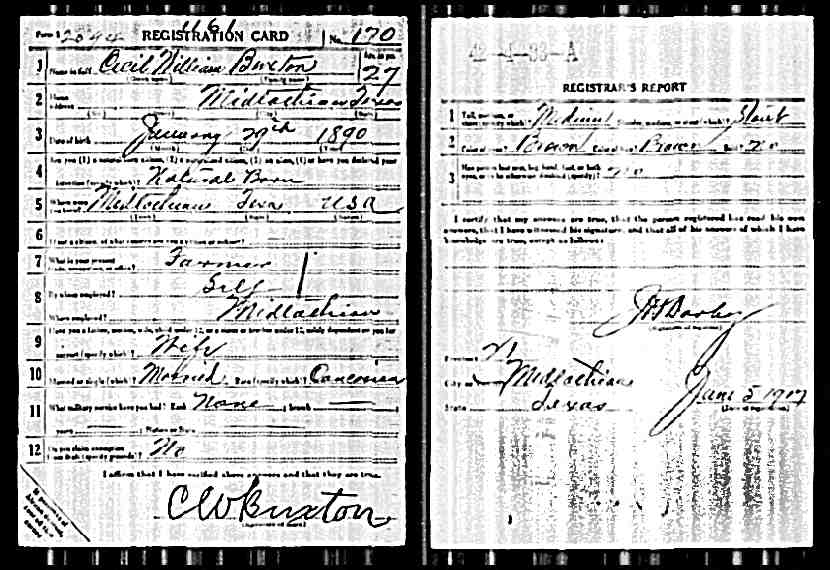 1161
Form 1 REGISTRATION CARD No. 170
1 Name in full Cecil William Buxton Age, in yrs. 27
2 Home address Midlothian Texas
3 Date of birth January 29th 1890
4 Are you (1) a natural-born citizen, (2) a naturalized citizen, (3) an alien, (4) or have you declared your
intention (specify which)? Natural Born
5 Where were you born? Midlothian Texas USA
6 If not a citizen, of what country are you a citizen or subject?
7 What is your present trade, occupation, or office? Farmer
8 By whom employed? Self
Where employed? Midlothian
9 Have you a father, mother, wife, child under 12, or a sister or brother under 12, solely dependent on you for
support (specify which)? Wife
10 Married or single (which)? Married Race (specify which)? Caucasian
11 What military service have you had? Rank None branch
years Nation or State
12 Do you claim exemption from draft (specify grounds)? No
I affirm that I have verified above answers and that they are true.
C W Buxton
(Signature or mark)
42-4-33-A
REGISTRAR'S REPORT
1 Tall, medium, or short (specify which)? Medium Slender, medium, or stout (which)? Stout
2 Color of eyes? Brown Color of hair? Brown Bald? No
3 Has person lost arm, leg, hand, foot, or both
eyes, or is he otherwise disabled (specify)? No
I certify that my answers are true, that the person registered has read his own
answers, that I have witnessed his signature, and that all of his answers of which I have
knowledge are true, except as follows:
(Signature of registrar)
Precinct
City or Midlothian
State Texas
June 5 1917
(Date of registration)